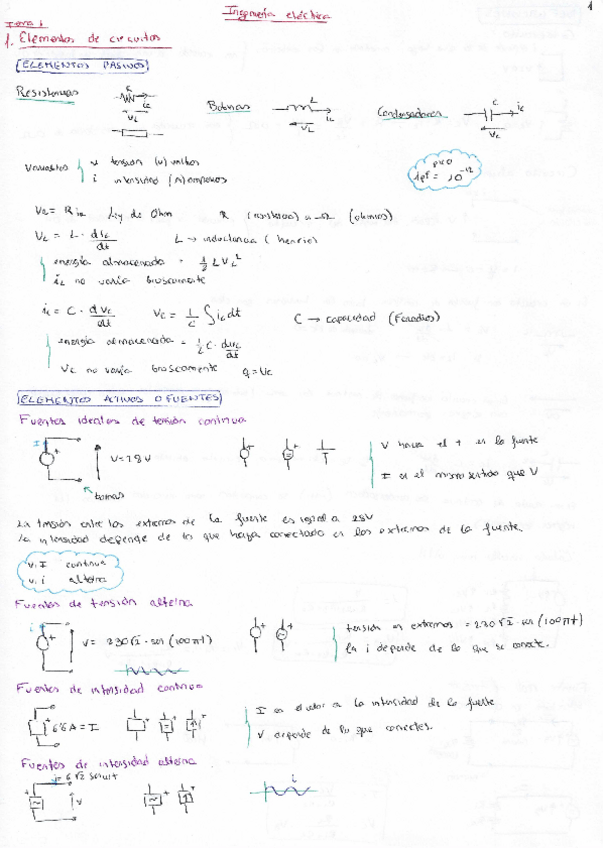 1
Ingeniería eléctrica
Tema 1
1. Elementos de circuitos
ELEMENTOS PASIVOS
Resistencias
R
iR
VR
Bobinas
L
iL
VL
Condensadores
C
ic
Vc
Variables
v tensión (v) voltios
i intensidad (A) amperios
pico
1pF = 10^-12
VR = R iR Ley de Ohm R (resistencia) Ω (ohmios)
VL = L · diL/dt L → inductancia (henrio)
energía almacenada = 1/2 L VL^2
iL no varía bruscamente
ic = C · dVc/dt Vc = 1/C ∫ ic dt C → capacidad (Faradios)
energía almacenada = 1/2 C · dVc/dt
Vc no varía bruscamente q = Vc
ELEMENTOS ACTIVOS O FUENTES
Fuentes ideales de tensión continua
I
+
V = 28V
bornas
V hacia el + es la fuente
I en el mismo sentido que V
La tensión entre los extremos de la fuente es igual a 28V
la intensidad depende de lo que haya conectado en los extremos de la fuente.
V, I continua
v, i alterna
Fuentes de tensión alterna
i
+
V = 230√2 · sen (100πt)
tensión en extremos = 230√2 · sen (100πt)
la i depende de lo que se conecte.
Fuentes de intensidad continua
6'6A = I
I es el valor de la intensidad de la fuente
V depende de lo que conectes.
Fuentes de intensidad alterna
i = 6√2 sen wt
v
i